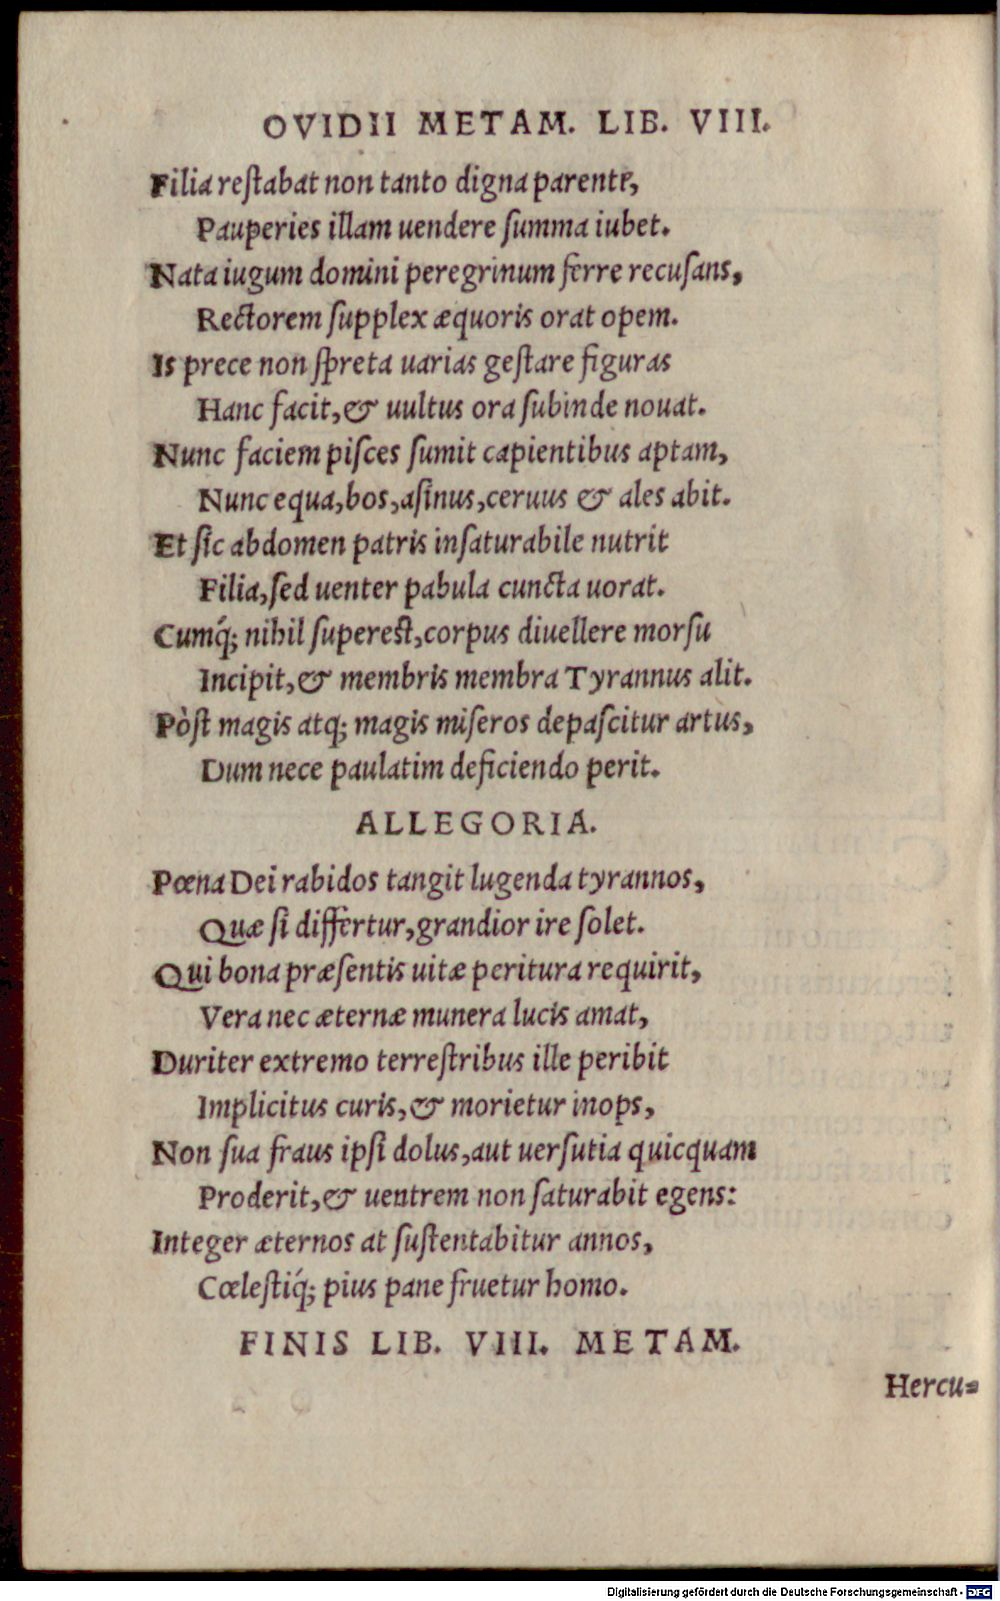 OVIDII METAM. LIB. VIII.
Filia reſtabat non tanto digna parente,
Pauperies illam uendere ſumma iubet.
Nata iugum domini peregrinum ferre recuſans,
Rectorem ſupplex æquoris orat opem.
Is prece non ſpreta uarias geſtare figuras
Hanc facit,& uultus ora ſubinde nouat.
Nunc faciem piſces ſumit capientibus aptam,
Nunc equa,bos,aſinus,ceruus & ales abit.
Et ſic abdomen patris inſaturabile nutrit
Filia,ſed uenter pabula cuncta uorat.
Cumq́; nihil ſupereſt,corpus diuellere morſu
Incipit,& membris membra Tyrannus alit.
Pòſt magis atq; magis miſeros depaſcitur artus,
Dum nece paulatim deficiendo perit.
ALLEGORIA.
Pœna Dei rabidos tangit lugenda tyrannos,
Quæ ſi differtur,grandior ire ſolet.
Qui bona præſentis uitæ peritura requirit,
Vera nec æternæ munera lucis amat,
Duriter extremo terreſtribus ille peribit
Implicitus curis,& morietur inops,
Non ſua fraus ipſi dolus,aut uerſutia quicquam
Proderit,& uentrem non ſaturabit egens:
Integer æternos at ſuſtentabitur annos,
Cœleſtiq́; pius pane fruetur homo.
FINIS LIB. VIII. METAM.
Hercu-
Digitalisierung gefördert durch die Deutsche Forschungsgemeinschaft - DFG